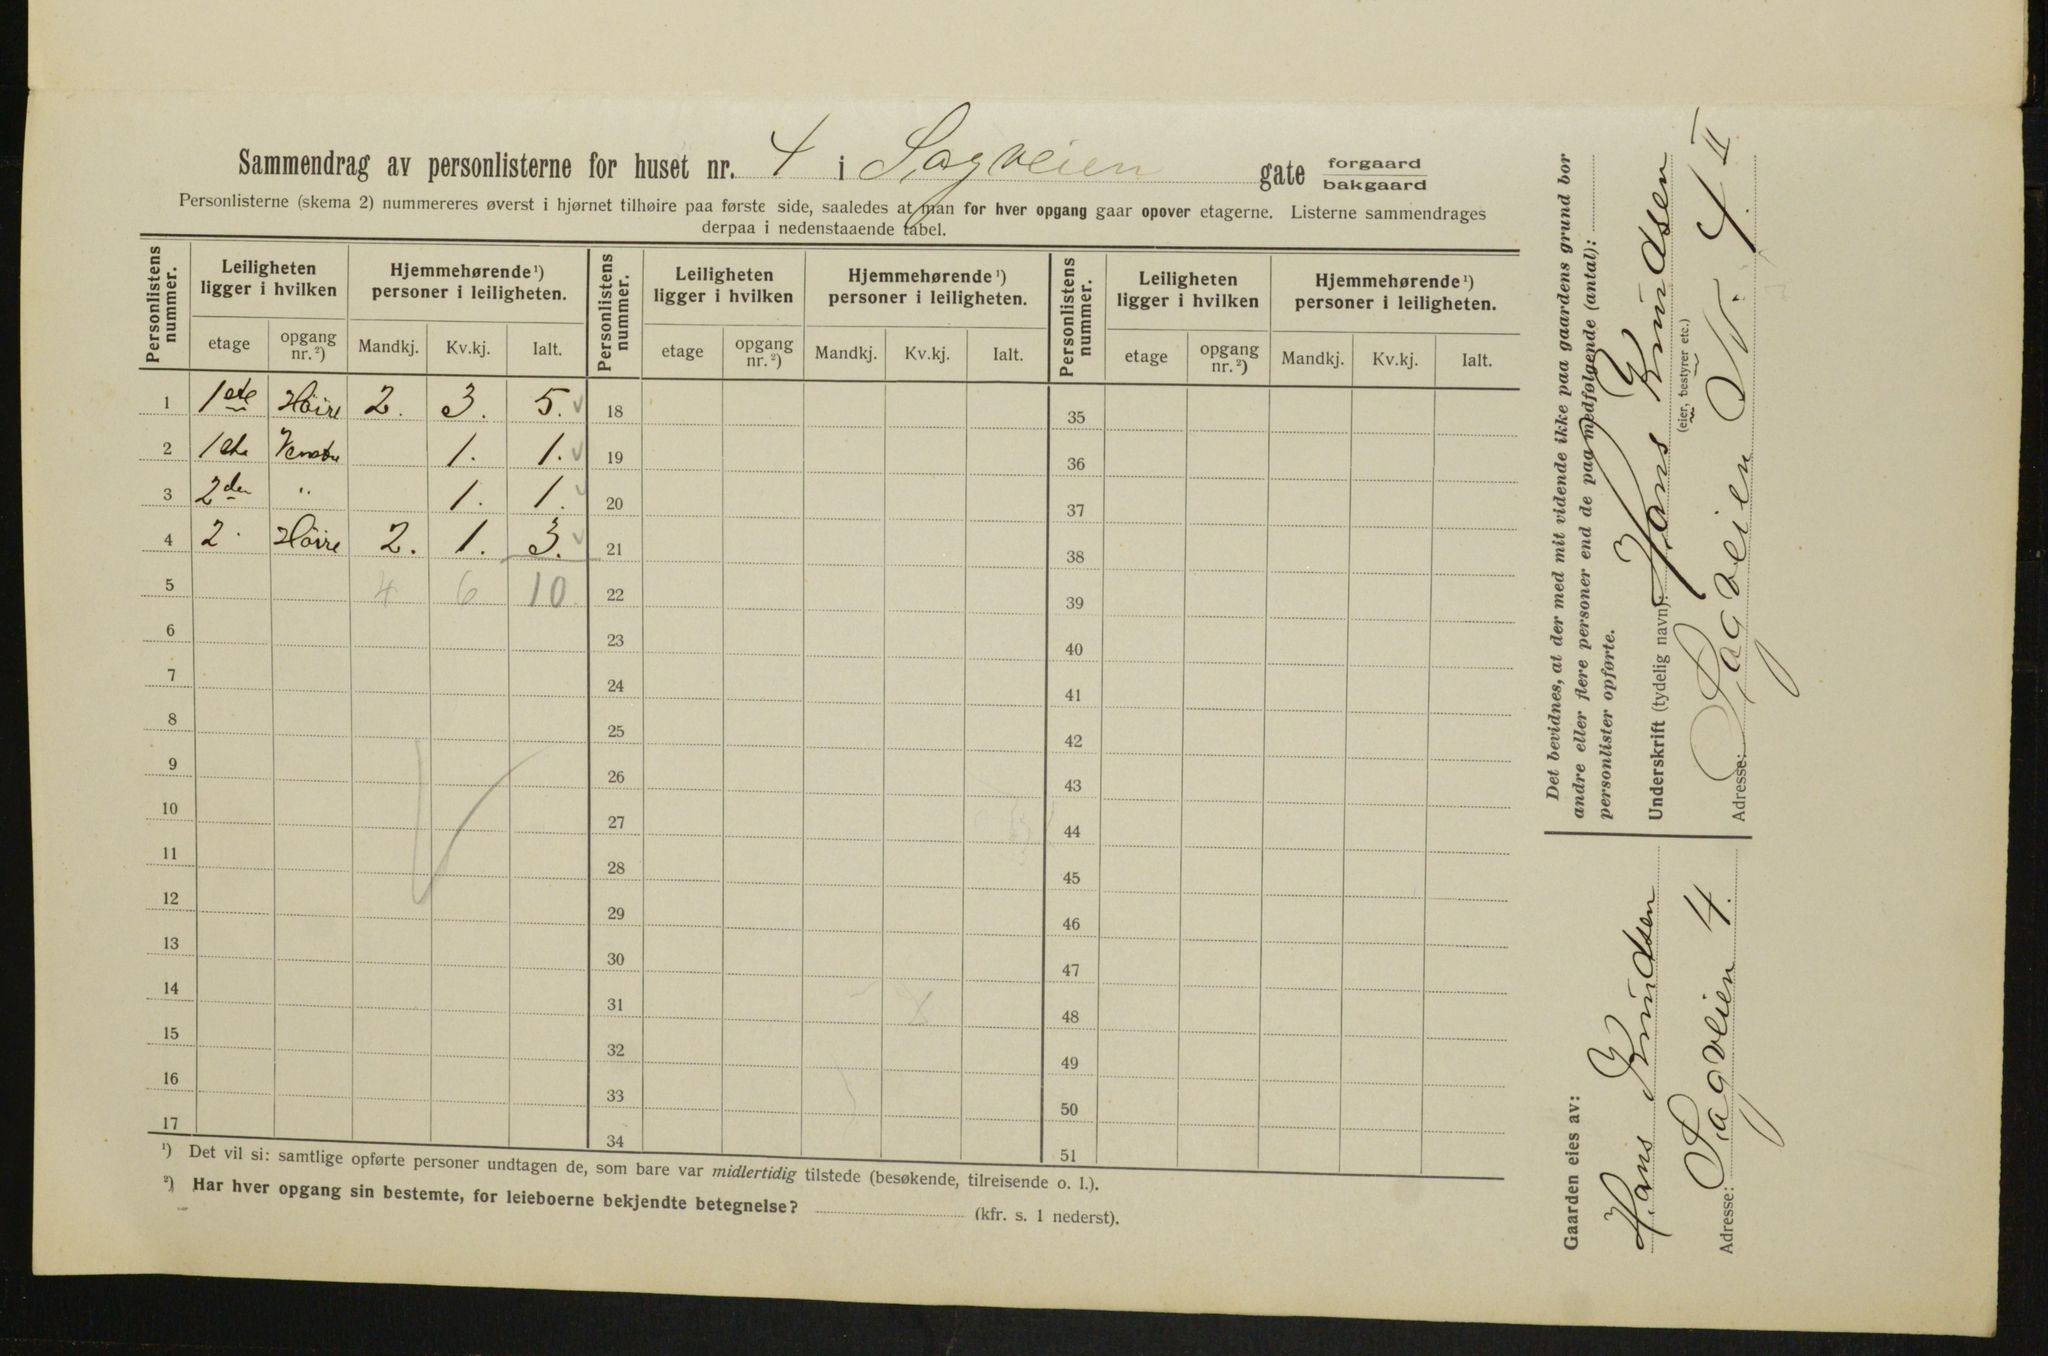 Sammendrag av personlisterne for huset nr. 4 i Sagveien gate forgaard
bakgaard
Personlisterne (skema 2) nummereres øverst i hjørnet tilhøire paa første side, saaledes at man for hver opgang gaar opover etagerne. Listerne sammendrages
derpaa i nedenstaaende tabel.
Personlistens nummer. Leiligheten ligger i hvilken Hjemmehørende ¹) personer i leiligheten. Personlistens nummer. Leiligheten ligger i hvilken Hjemmehørende ¹) personer i leiligheten. Personlistens nummer. Leiligheten ligger i hvilken Hjemmehørende ¹) personer i leiligheten.
etage opgang nr. ²) Mandkj. Kv.kj. Ialt. etage opgang nr. ²) Mandkj. Kv.kj. Ialt. etage opgang nr. ²) Mandkj. Kv.kj. Ialt.
1 1ste Höire 2. 3. 5. 18 35
2 1ste Venstre 1. 1. 19 36
3 2den " 1. 1. 20 37
4 2. Höire 2. 1. 3. 21 38
5 4 6 10 22 39
6 23 40
7 24 41
8 25 42
9 26 43
10 27 44
11 28 45
12 29 46
13 30 47
14 31 48
15 32 49
16 33 50
17 34 51
¹) Det vil si: samtlige opførte personer undtagen de, som bare var midlertidig tilstede (besøkende, tilreisende o. l.).
²) Har hver opgang sin bestemte, for leieboerne bekjendte betegnelse? (kfr. s. 1 nederst).
Det bevidnes, at der med mit vidende ikke paa gaardens grund bor
andre eller flere personer end de paa medfølgende (antal):
personlister opførte.
Underskrift (tydelig navn): Hans Knudsen
(eier, bestyrer etc.)
Adresse: Sagveien N. 4. II
Gaarden eies av:
Hans Knudsen
Adresse: Sagveien 4.